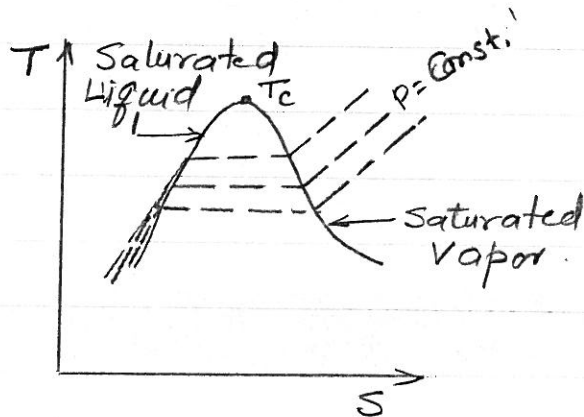 T
Saturated
Liquid
Tc
P= Const.
Saturated
Vapor.
S